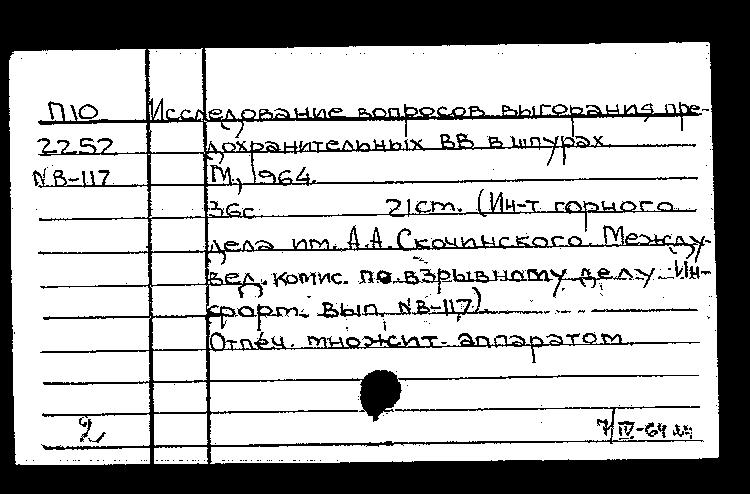 П10 Исследование вопросов выгорания пре-
2252 дохранительных ВВ в шпурах.
NВ-117 М., 1964.
36с 21ст. (Ин-т горного
дела им. А.А. Скочинского. Между-
вед. комис. по взрывному делу. Ин-
форт. вып. NВ-117)
Отпеч. множит. аппаратом
2 7/IV-64